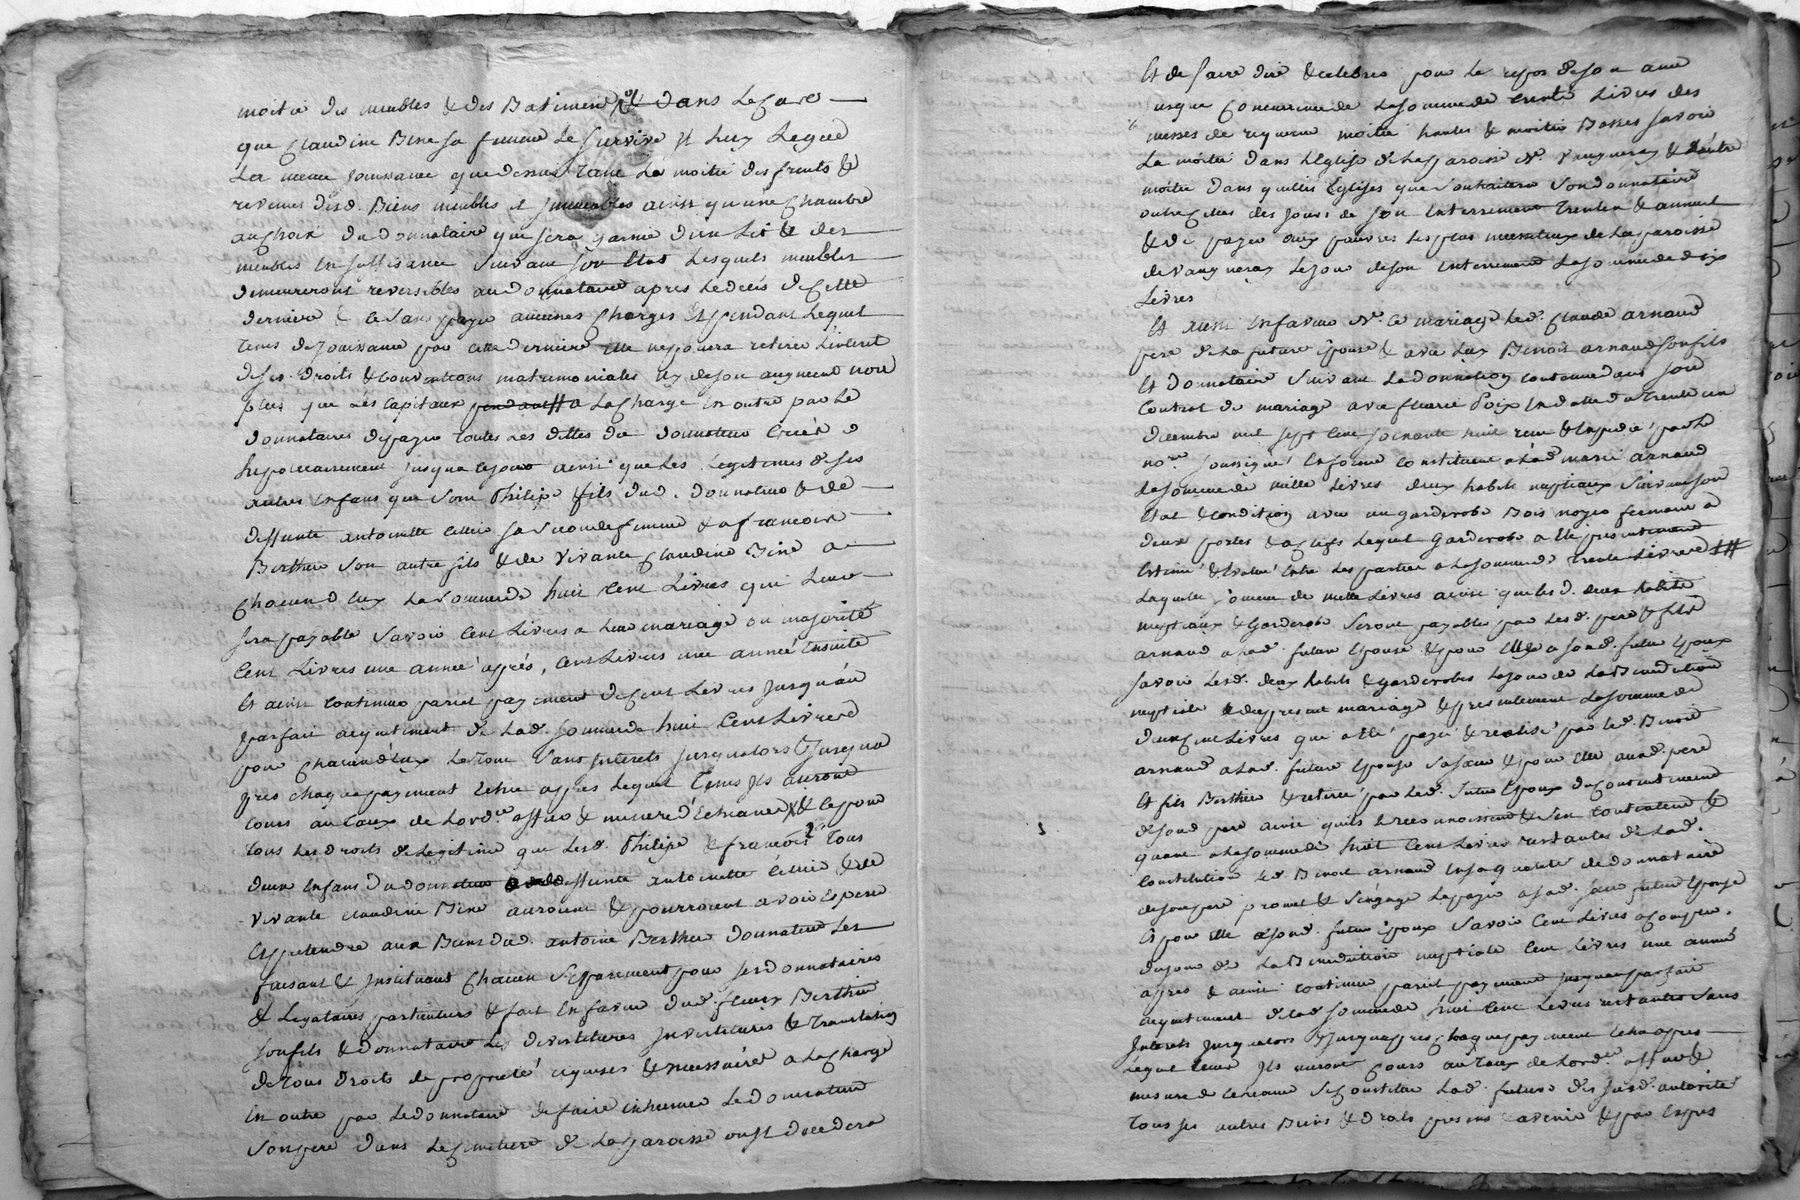 moitié des meubles & des Batiments & dans le Cas
que Claudine Bine sa femme le survive Il luy Legue
La meme jouissance que dessus Tant La moitié des fruits &
revenus desd. Biens meubles & jmmeubles ainsi qu'une Chambre
au Choix du donnataire qui sera garnie d'un Lit & des
meubles en suffisance Suivant son Etat Lesquels meubles
demeureront reversibles au donnataire apres le décés de Cette
derniere & le sans payer aucunes Charges Et pendant Lequel
tems de Jouissance par cette derniere elle ne poura retirer L'interet
de ses droits & Conventions matrimoniales ny de son augment non
plus que Les Capitaux a La Charge En outre par Le
donnataire de payer toutes Les dettes du donnateur Créés
hipotecairement jusqua ce jour ainsi que Les Legitimes de ses
autres Enfans que sont Philipe fils dud. donnateur & de
deffunte antoinette sa seconde femme & a francois
Berthier son autre fils & de vivante Claudine Bine a
Chacun d'Eux La somme de huit Cent Livres qui Leur
sera payable Savoir Cent Livres a leur mariage ou majorité
Cent Livres une année après, Cent Livres une année Ensuite
Et ainsi Continuer pareil payement de Cent Livres Jusqu'au
parfait acquitement de Lad. somme de huit Cent Livres
pour Chacun d'Eux Le Tout Sans Interets Jusqu'alors & Jusqua
pres chaque payement Echu apres Lequel Tems Ils auront
cours au taux de Lord.ce & mesure d'Echeance & Ce pour
tous Les droits de Legitime que Lesd. Philipe & francois Tous
deux Enfans du donnateur deffunte antoinette & de
vivante Claudine Bine auroient & pourroient avoir Esperer
Et pretendre aux Biens dud. antoine Berthier donnateur Les
faisant & Instituant Chacun Separement pour ses donnataires
& Legataires particuliers & fait En faveur dud. fleury Berthier
son fils & donnataire Les devestitures Investitures & Translation
de tous droits de propriété requises & necessaires a La Charge
En outre par Le donnataire de faire inhumer Le donnateur
son pere dans Le Cimetiere de La paroisse ou Il decedera
Et de faire dire & celebrer pour Le repos de son ame
jusqua Concurrence de La somme de trente Livres des
messes de requiem moitié hautes & moitié Basses savoir
La moitié dans L'Eglise de La paroisse de Vaugneray & L'autre
moitié dans quelles Eglises que Souhaitera Son donnataire
outre Celles des Jours de son Enterrement Trentin & annuel
& de payer aux pauvres Les plus necessiteux de La paroisse
de Vaugneray Le Jour de son Enterrement La somme de dix
Livres
Et aussi En faveur de Ce mariage Led. Claude arnaud
pere de La future Epouse & avec Luy Benoit arnaud son fils
Et donnataire Suivant La donnation Contenue dans son
Contrat de mariage avec fleurie En datte du Trente un
decembre mil sept Cent soixante huit recu & Expedié par Le
no.re soussigné Enforme Constituent a Lad. marie arnaud
La somme de mille Livres deux habits nuptiaux Suivant son
Etat & Condition avec un garderobe Bois noyer fermant a
deux portes & a Clefs Lequel garderobe a été presentement
Estimé & Evalué Entre Les parties a La somme de Trente Livres
Laquelle somme de mille Livres ainsi que Lesd. deux habits
nuptiaux & Garderobe Seront payables par Lesd. pere & fils
arnaud a Lad. future Epouse & pour Elle a sond. futur Epoux
savoir Lesd. deux habits & garderobes Le jour de La Benediction
nuptiale du present mariage & presentement La somme de
deux Cent Livres qui a été payée & realisé par Led. Benoit
arnaud a Lad. future Epouse & pour Elle aud. pere
Et fils Berthier & retirée par Led. futur Epoux du Consentement
de sond. pere ainsi qu'ils Le reconnoissent & s'en Contentent &
quant a La somme de huit Cent Livres restantes de Lad.
Constitution Led. Benoit arnaud En sa qualité de donnataire
de son pere promet & s'engage La payer a Lad. future Epouse
Et pour Elle a sond. futur Epoux Savoir Cent Livres a Compter
du jour de La Benediction nuptiale Cent Livres une année
apres & ainsi Continuer pareil payement jusquau parfait
acquitement de Lad. somme de huit Cent Livres restantes Sans
Interets Jusqu'alors & Jusqu'apres Chaque payement Echu apres
Lequel tems Ils auront Cours au taux de Lord.ce &
mesure de Echeance Se Constitue Lad. future de susd. autorité
Tous ses autres Biens & droits presens & avenir & par Expres